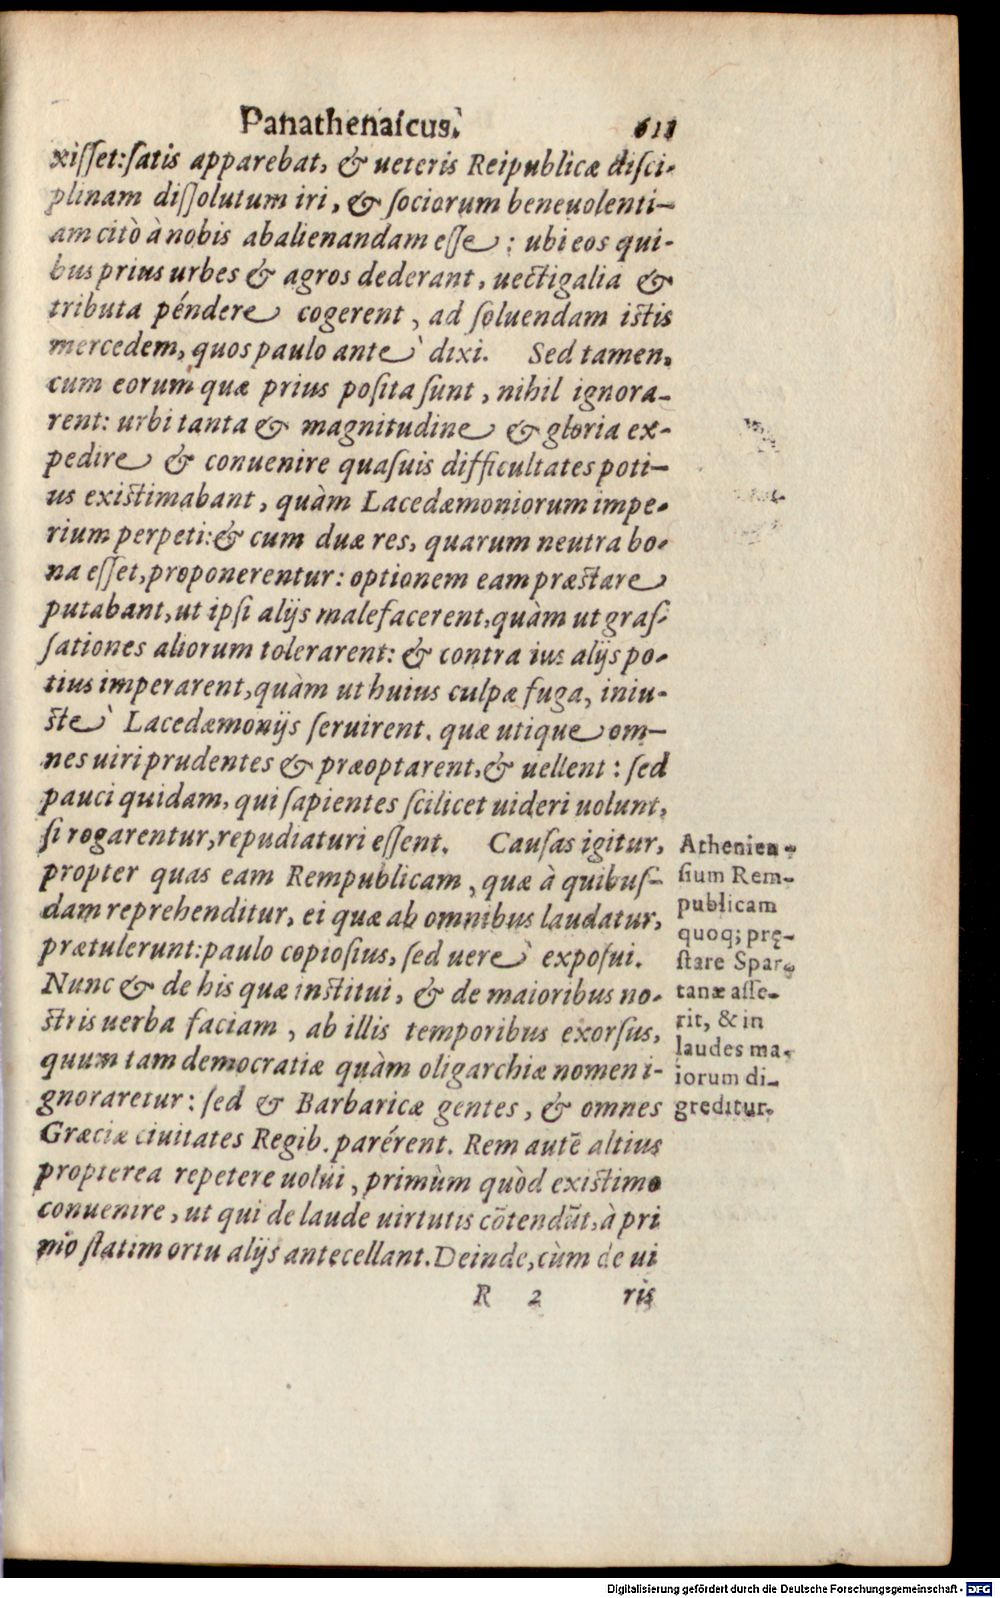 Panathenaicus. 611
xisset: satis apparebat, & ueteris Reipublicæ disci-
plinam dissolutum iri, & sociorum beneuolenti-
am citò à nobis abalienandam esse: ubi eos qui-
bus prius urbes & agros dederant, uectigalia &
tributa péndere cogerent, ad soluendam istis
mercedem, quos paulo antè dixi. Sed tamen,
cum eorum quæ prius posita sunt, nihil ignora-
rent: urbi tanta & magnitudine & gloria ex-
pedire & conuenire quasuis difficultates poti-
us existimabant, quàm Lacedæmoniorum impe-
rium perpeti: & cum duæ res, quarum neutra bo-
na esset, proponerentur: optionem eam præstare
putabant, ut ipsi alijs malefacerent, quàm ut gras-
sationes aliorum tolerarent: & contra ius alijs po-
tius imperarent, quàm ut huius culpæ fuga, iniu-
stè Lacedæmonijs seruirent. quæ utique om-
nes uiri prudentes & præoptarent, & uellent: sed
pauci quidam, qui sapientes scilicet uideri uolunt,
si rogarentur, repudiaturi essent. Causas igitur,
propter quas eam Rempublicam, quæ à quibus-
dam reprehenditur, ei quæ ab omnibus laudatur,
prætulerunt: paulo copiosius, sed uerè exposui.
Nunc & de his quæ institui, & de maioribus no-
stris uerba faciam, ab illis temporibus exorsus,
quum tam democratiæ quàm oligarchiæ nomen i-
gnoraretur: sed & Barbaricæ gentes, & omnes
Græciæ ciuitates Regib. parérent. Rem autẽ altius
propterea repetere uolui, primùm quòd existimo
conuenire, ut qui de laude uirtutis cõtendũt, à pri
mo statim ortu alijs antecellant. Deinde, cùm de ui
R 2 ris
Athenien-
sium Rem-
publicam
quoq; prę-
stare Spar-
tanæ asse-
rit, & in
laudes ma-
iorum di-
greditur.
Digitalisierung gefördert durch die Deutsche Forschungsgemeinschaft - DFG